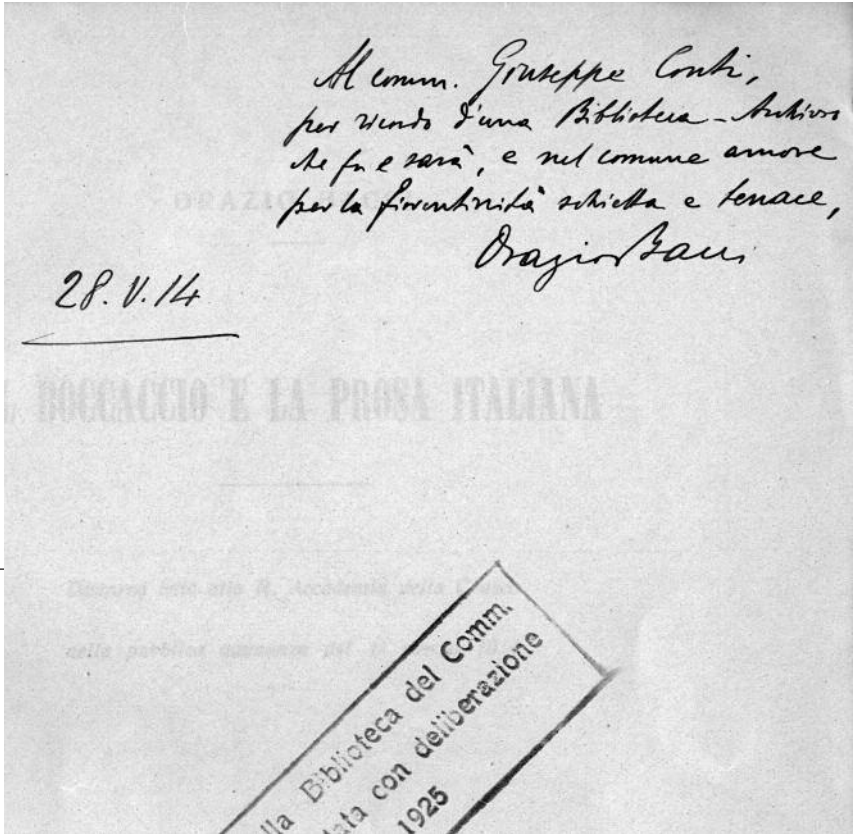 Al comm. Giuseppe Conti,
per ricordo d'una Biblioteca - Archivio
che fu e sarà, e nel comune amore
per la fiorentinità schietta e tenace,
Orazio Bacci
28. V. 14
ORAZIO BACCI
BOCCACCIO E LA PROSA ITALIANA
Discorso letto alla R. Accademia della Crusca
nella pubblica adunanza del
lla Biblioteca del Comm.
tata con deliberazione
1925